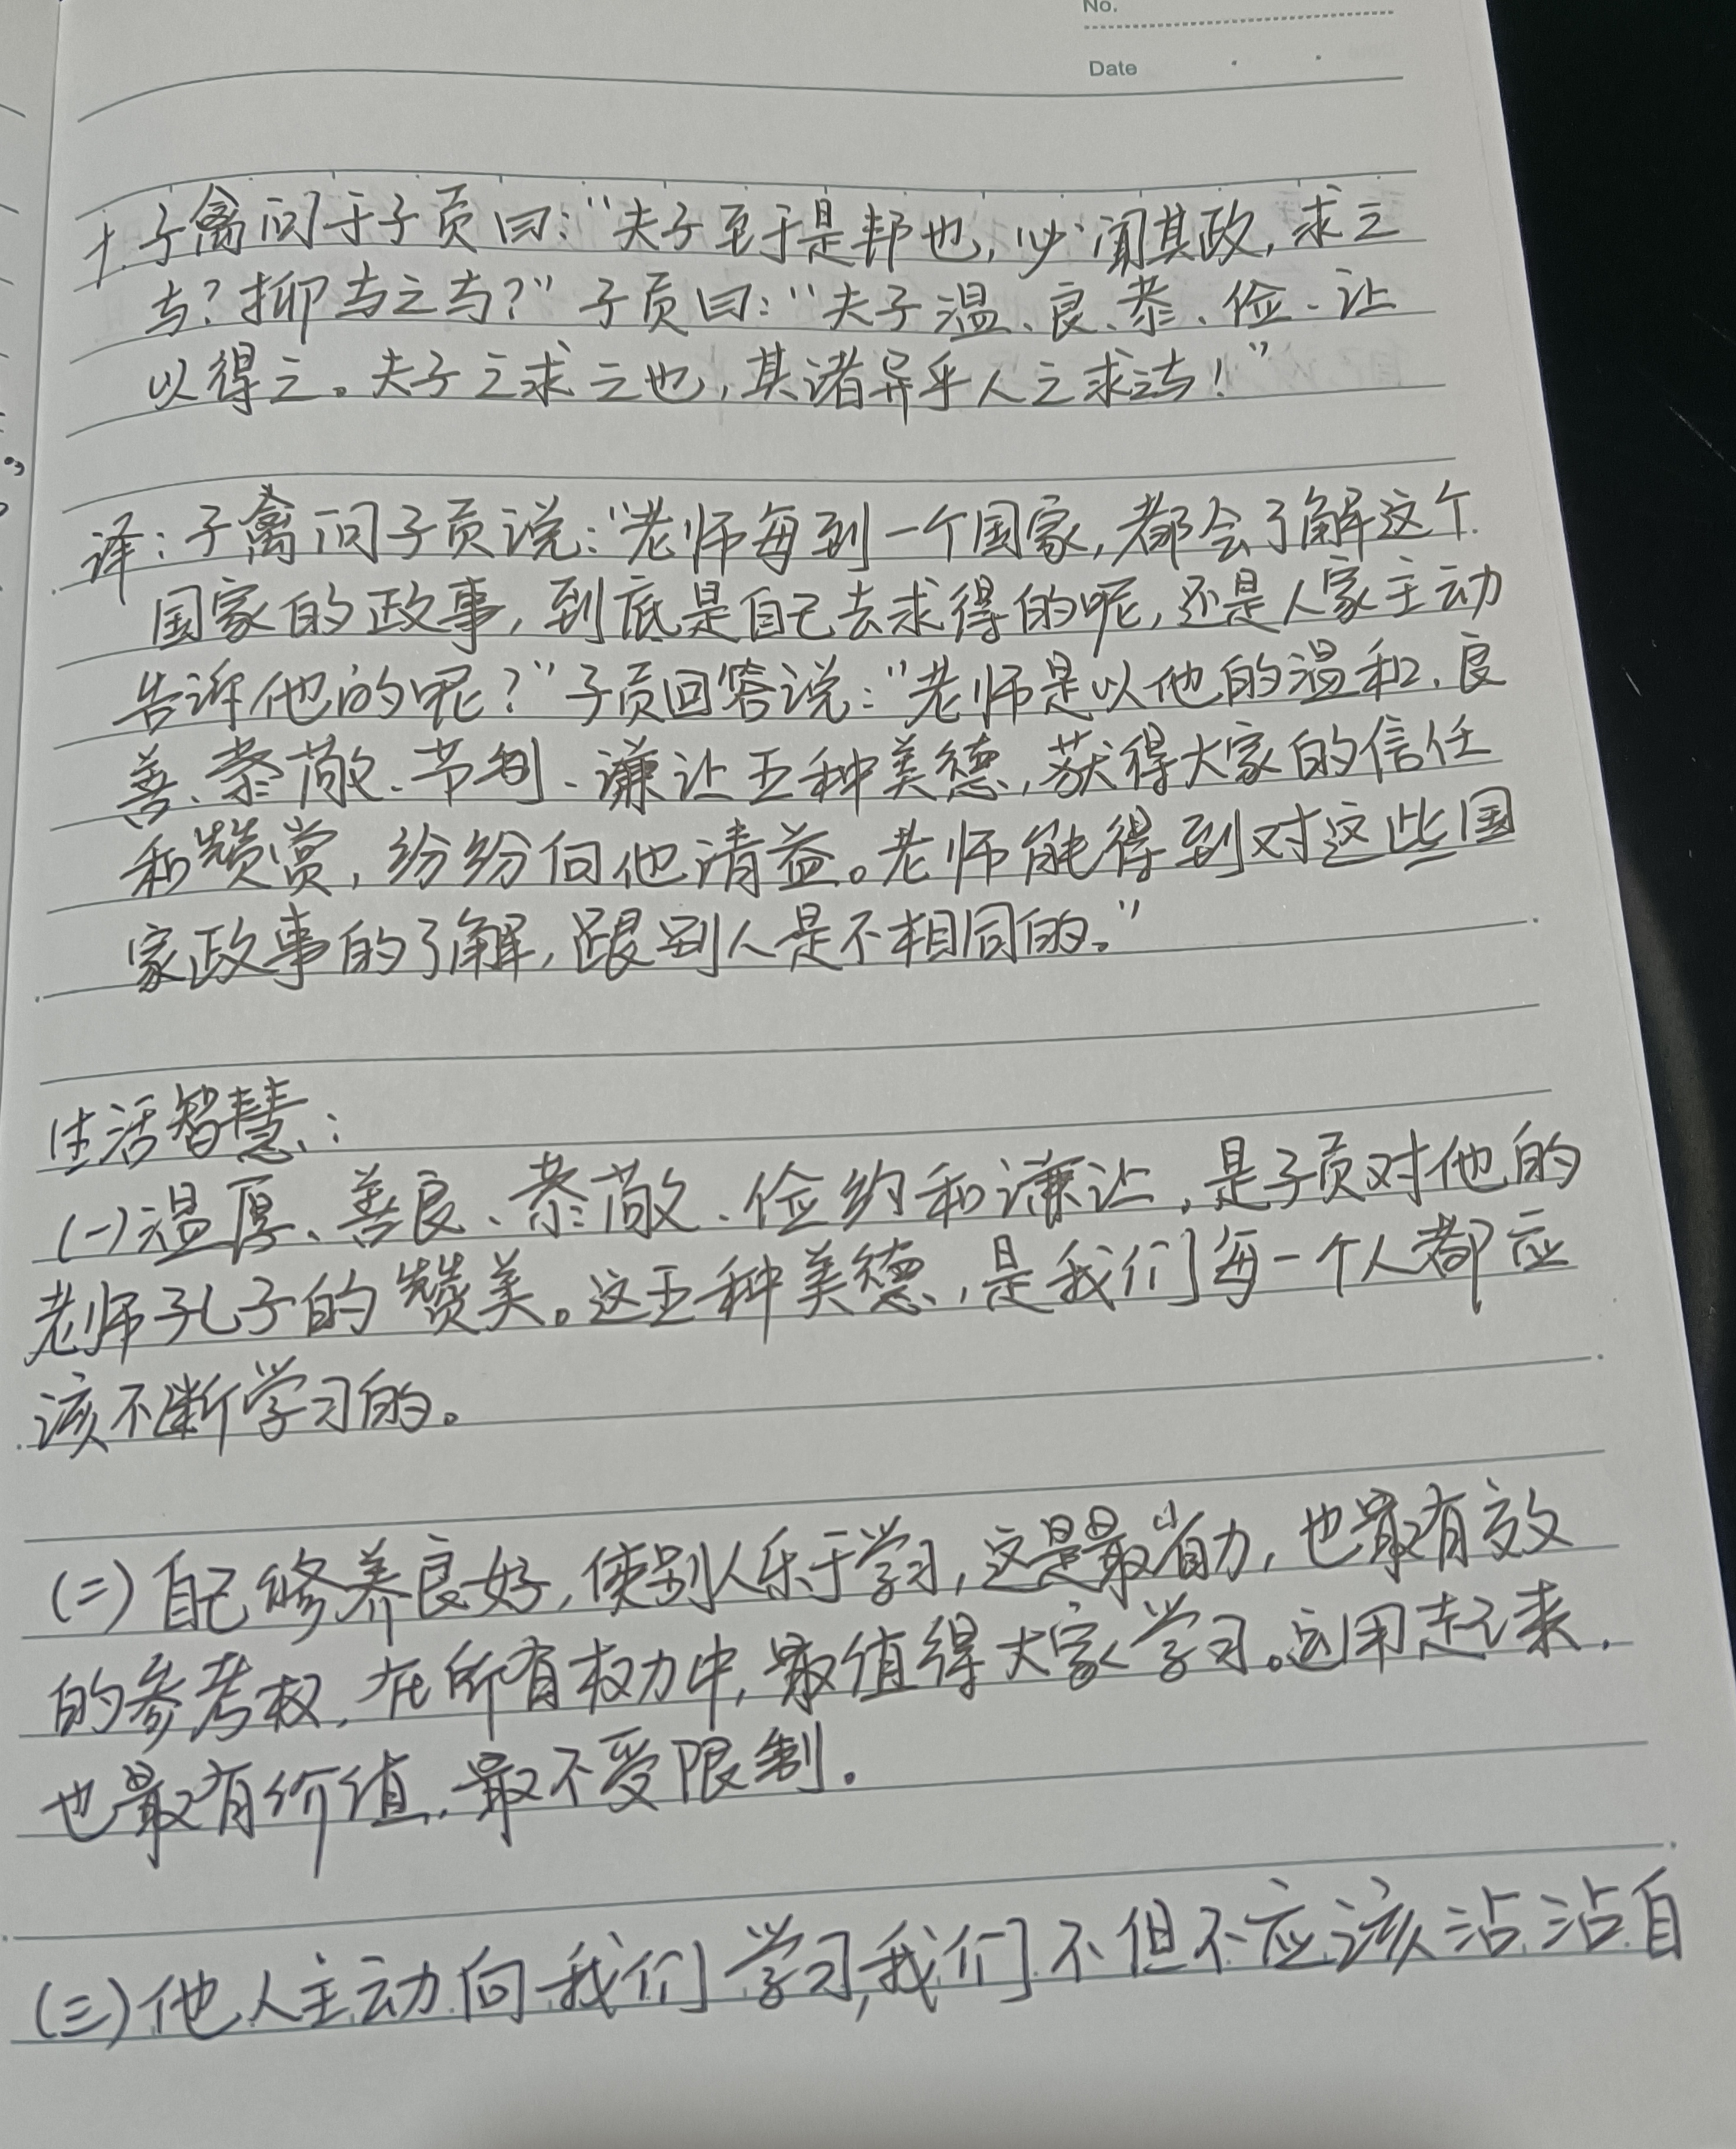 No.
Date
十.子禽问于子贡曰:“夫子至于是邦也,必闻其政,求之
与?抑与之与?”子贡曰:“夫子温、良、恭、俭、让
以得之。夫子之求之也,其诸异乎人之求之与!”
译:子禽问子贡说:“老师每到一个国家,都会了解这个
国家的政事,到底是自己去求得的呢,还是人家主动
告诉他的呢?”子贡回答说:“老师是以他的温和、良
善、恭敬、节制、谦让五种美德,获得大家的信任
和赞赏,纷纷向他请益。老师能得到对这些国
家政事的了解,跟别人是不相同的。”
生活智慧:
(一)温厚、善良、恭敬、俭约和谦让,是子贡对他的
老师孔子的赞美。这五种美德,是我们每一个人都应
该不断学习的。
(二)自己修养良好,使别人乐于学习,这是最省力,也最有效
的参考权,在所有权力中,最值得大家学习。运用起来,
也最有价值,最不受限制。
(三)他人主动向我们学习,我们不但不应该沾沾自